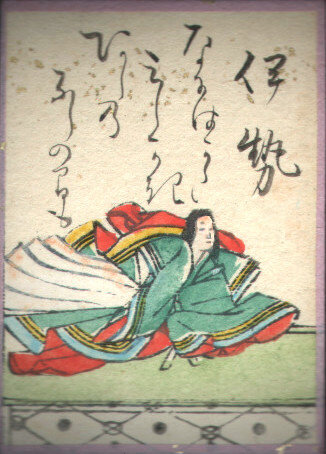 伊勢
なにはかた
みしかき
あしの
ふしの間も